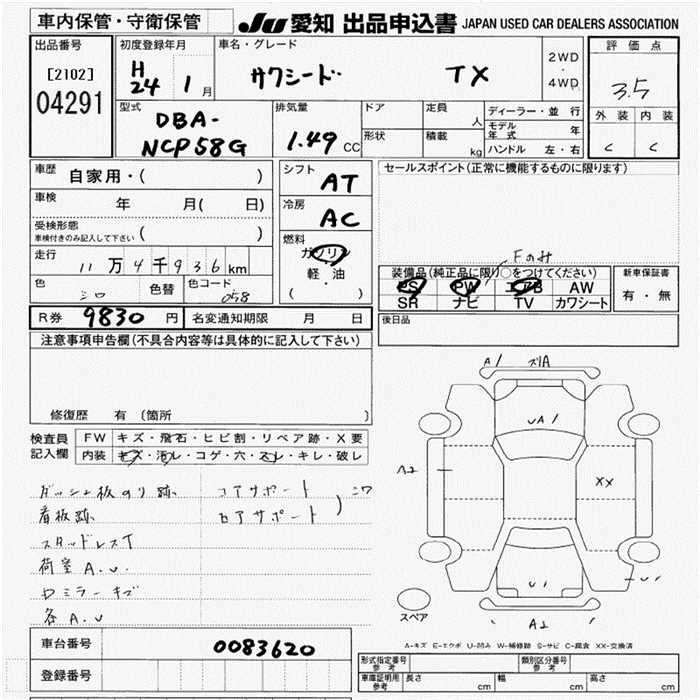 車内保管・守衛保管
JU 愛知 出品申込書 JAPAN USED CAR DEALERS ASSOCIATION
出品番号
[2102]
04291
初度登録年月
H24 1 月
車名・グレード
サクシード TX
2WD・4WD
評価点
3.5
外装 内装
C C
型式
DBA-
NCP58G
排気量
1.49 CC
ドア
形状
定員 人
積載 kg
ディーラー・並行
モデル年式 年
ハンドル 左・右
車歴 自家用・( )
車検 年 月( 日)
受検形態
車検付きのみ記入して下さい ( )
走行 11万4千936km
色 シロ 色替 色コード 058
シフト AT
冷房 AC
燃料
ガソリン
軽・油
( )
セールスポイント(正常に機能するものに限ります)
Fのみ
装備品(純正品に限り○をつけてください)
PS PW エアB AW
SR ナビ TV カワシート
新車保証書
有・無
後日品
R券 9830 円 名変通知期限 月 日
注意事項申告欄(不具合内容等は具体的に記入して下さい)
修復歴 有 (箇所 )
検査員記入欄
FW キズ・飛石・ヒビ割・リペア跡・X要
内装 キズ・汚レ・コゲ・穴・スレ・キレ・破レ
ダッシュ板のり跡
看板跡
スタッドレスT
荷室A.U.
ドミラーキズ
各A.U
コアサポート
ロアサポート
A1
UA1
A2
XX
U1
A2
スペア
A-キズ E-エクボ U-凹み W-補修跡 S-サビ C-腐食 XX-交換済
車台番号 0083620
登録番号
形式指定番号 参考
類別区分番号 参考
車庫証明用 参考 長さ cm 幅 cm 高さ cm